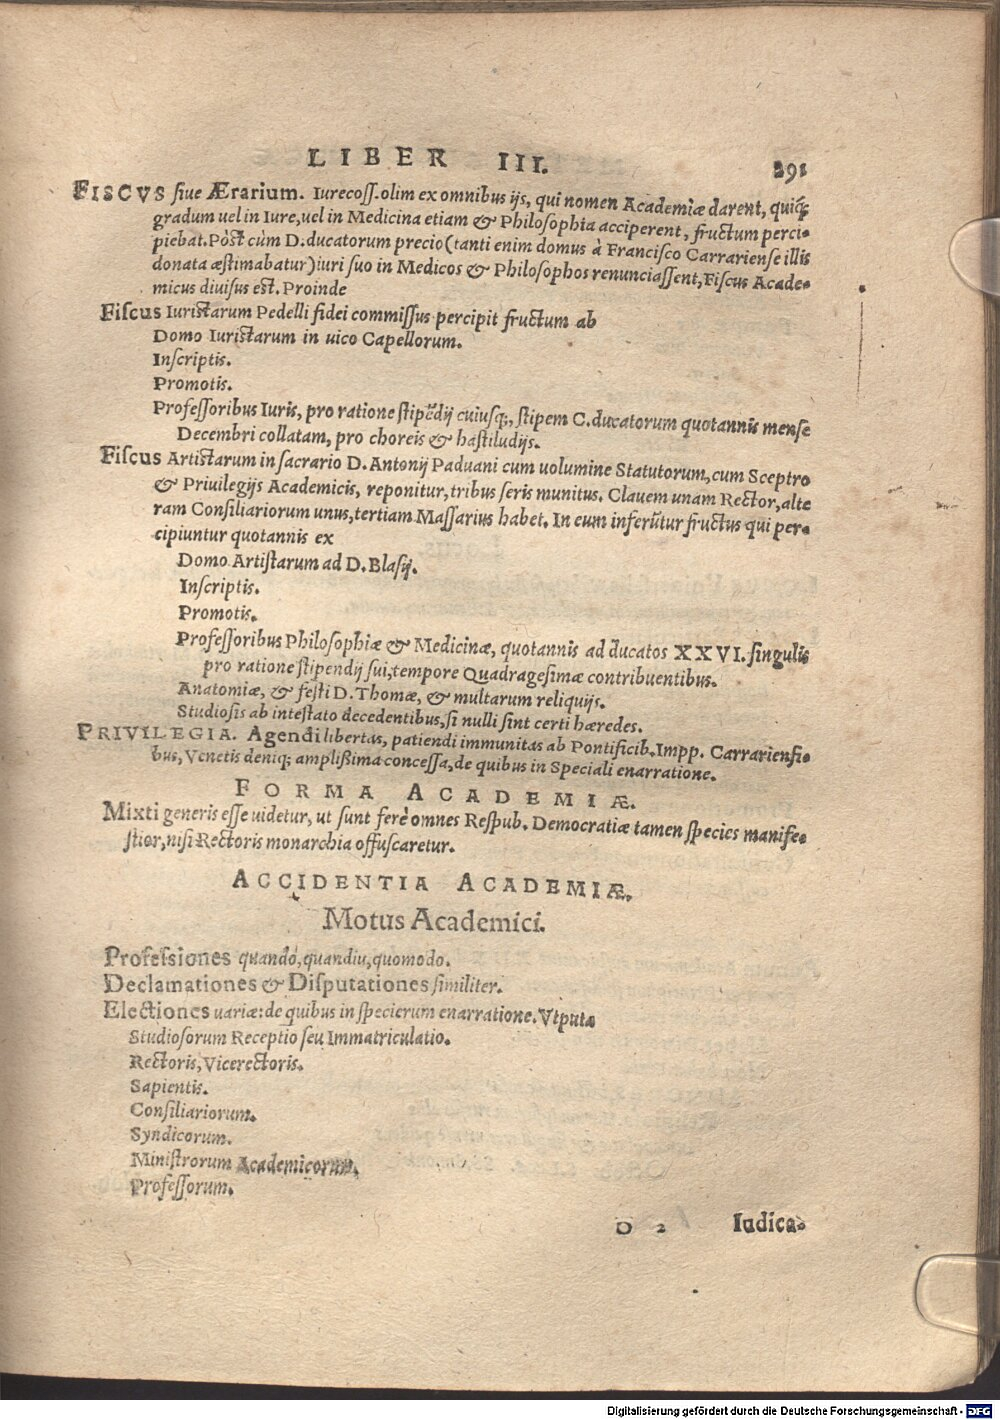 LIBER III. 291
FISCVS siue Ærarium. Iurecoss. olim ex omnibus ijs, qui nomen Academiæ darent, quiq;
gradum uel in Iure, uel in Medicina etiam & Philosophia acciperent, fructum perci-
piebat. Pòst cùm D. ducatorum precio (tanti enim domus à Francisco Carrariense illis
donata æstimabatur) iuri suo in Medicos & Philosophos renunciassent, Fiscus Acade-
micus diuisus est. Proinde
Fiscus Iuristarum Pedelli fidei commissus percipit fructum ab
Domo Iuristarum in uico Capellorum.
Inscriptis.
Promotis.
Professoribus Iuris, pro ratione stipēdij cuiusq;, stipem C. ducatorum quotannis mense
Decembri collatam, pro choreis & hastiludijs.
Fiscus Artistarum in sacrario D. Antonij Paduani cum uolumine Statutorum, cum Sceptro
& Priuilegijs Academicis, reponitur, tribus seris munitus. Clauem unam Rector, alte
ram Consiliariorum unus, tertiam Massarius habet. In eum inferūtur fructus qui per-
cipiuntur quotannis ex
Domo Artistarum ad D. Blasij.
Inscriptis.
Promotis.
Professoribus Philosophiæ & Medicinæ, quotannis ad ducatos XXVI. singulis
pro ratione stipendij sui, tempore Quadragesimæ contribuentibus.
Anatomiæ, & festi D. Thomæ, & multarum reliquijs.
Studiosis ab intestato decedentibus, si nulli sint certi hæredes.
PRIVILEGIA. Agendi libertas, patiendi immunitas ab Pontificib. Impp. Carrariensi-
bus, Venetis deniq; amplißima concessa, de quibus in Speciali enarratione.
FORMA ACADEMIÆ.
Mixti generis esse uidetur, ut sunt ferè omnes Respub. Democratiæ tamen species manife-
stior, nisi Rectoris monarchia offuscaretur.
ACCIDENTIA ACADEMIÆ.
Motus Academici.
Professiones quando, quandiu, quomodo.
Declamationes & Disputationes similiter.
Electiones uariæ: de quibus in specierum enarratione. Vtputa
Studiosorum Receptio seu Immatriculatio.
Rectoris, Vicerectoris.
Sapientis.
Consiliariorum.
Syndicorum.
Ministrorum Academicorum.
Professorum.
O 2 Iudica-
Digitalisierung gefördert durch die Deutsche Forschungsgemeinschaft - DFG